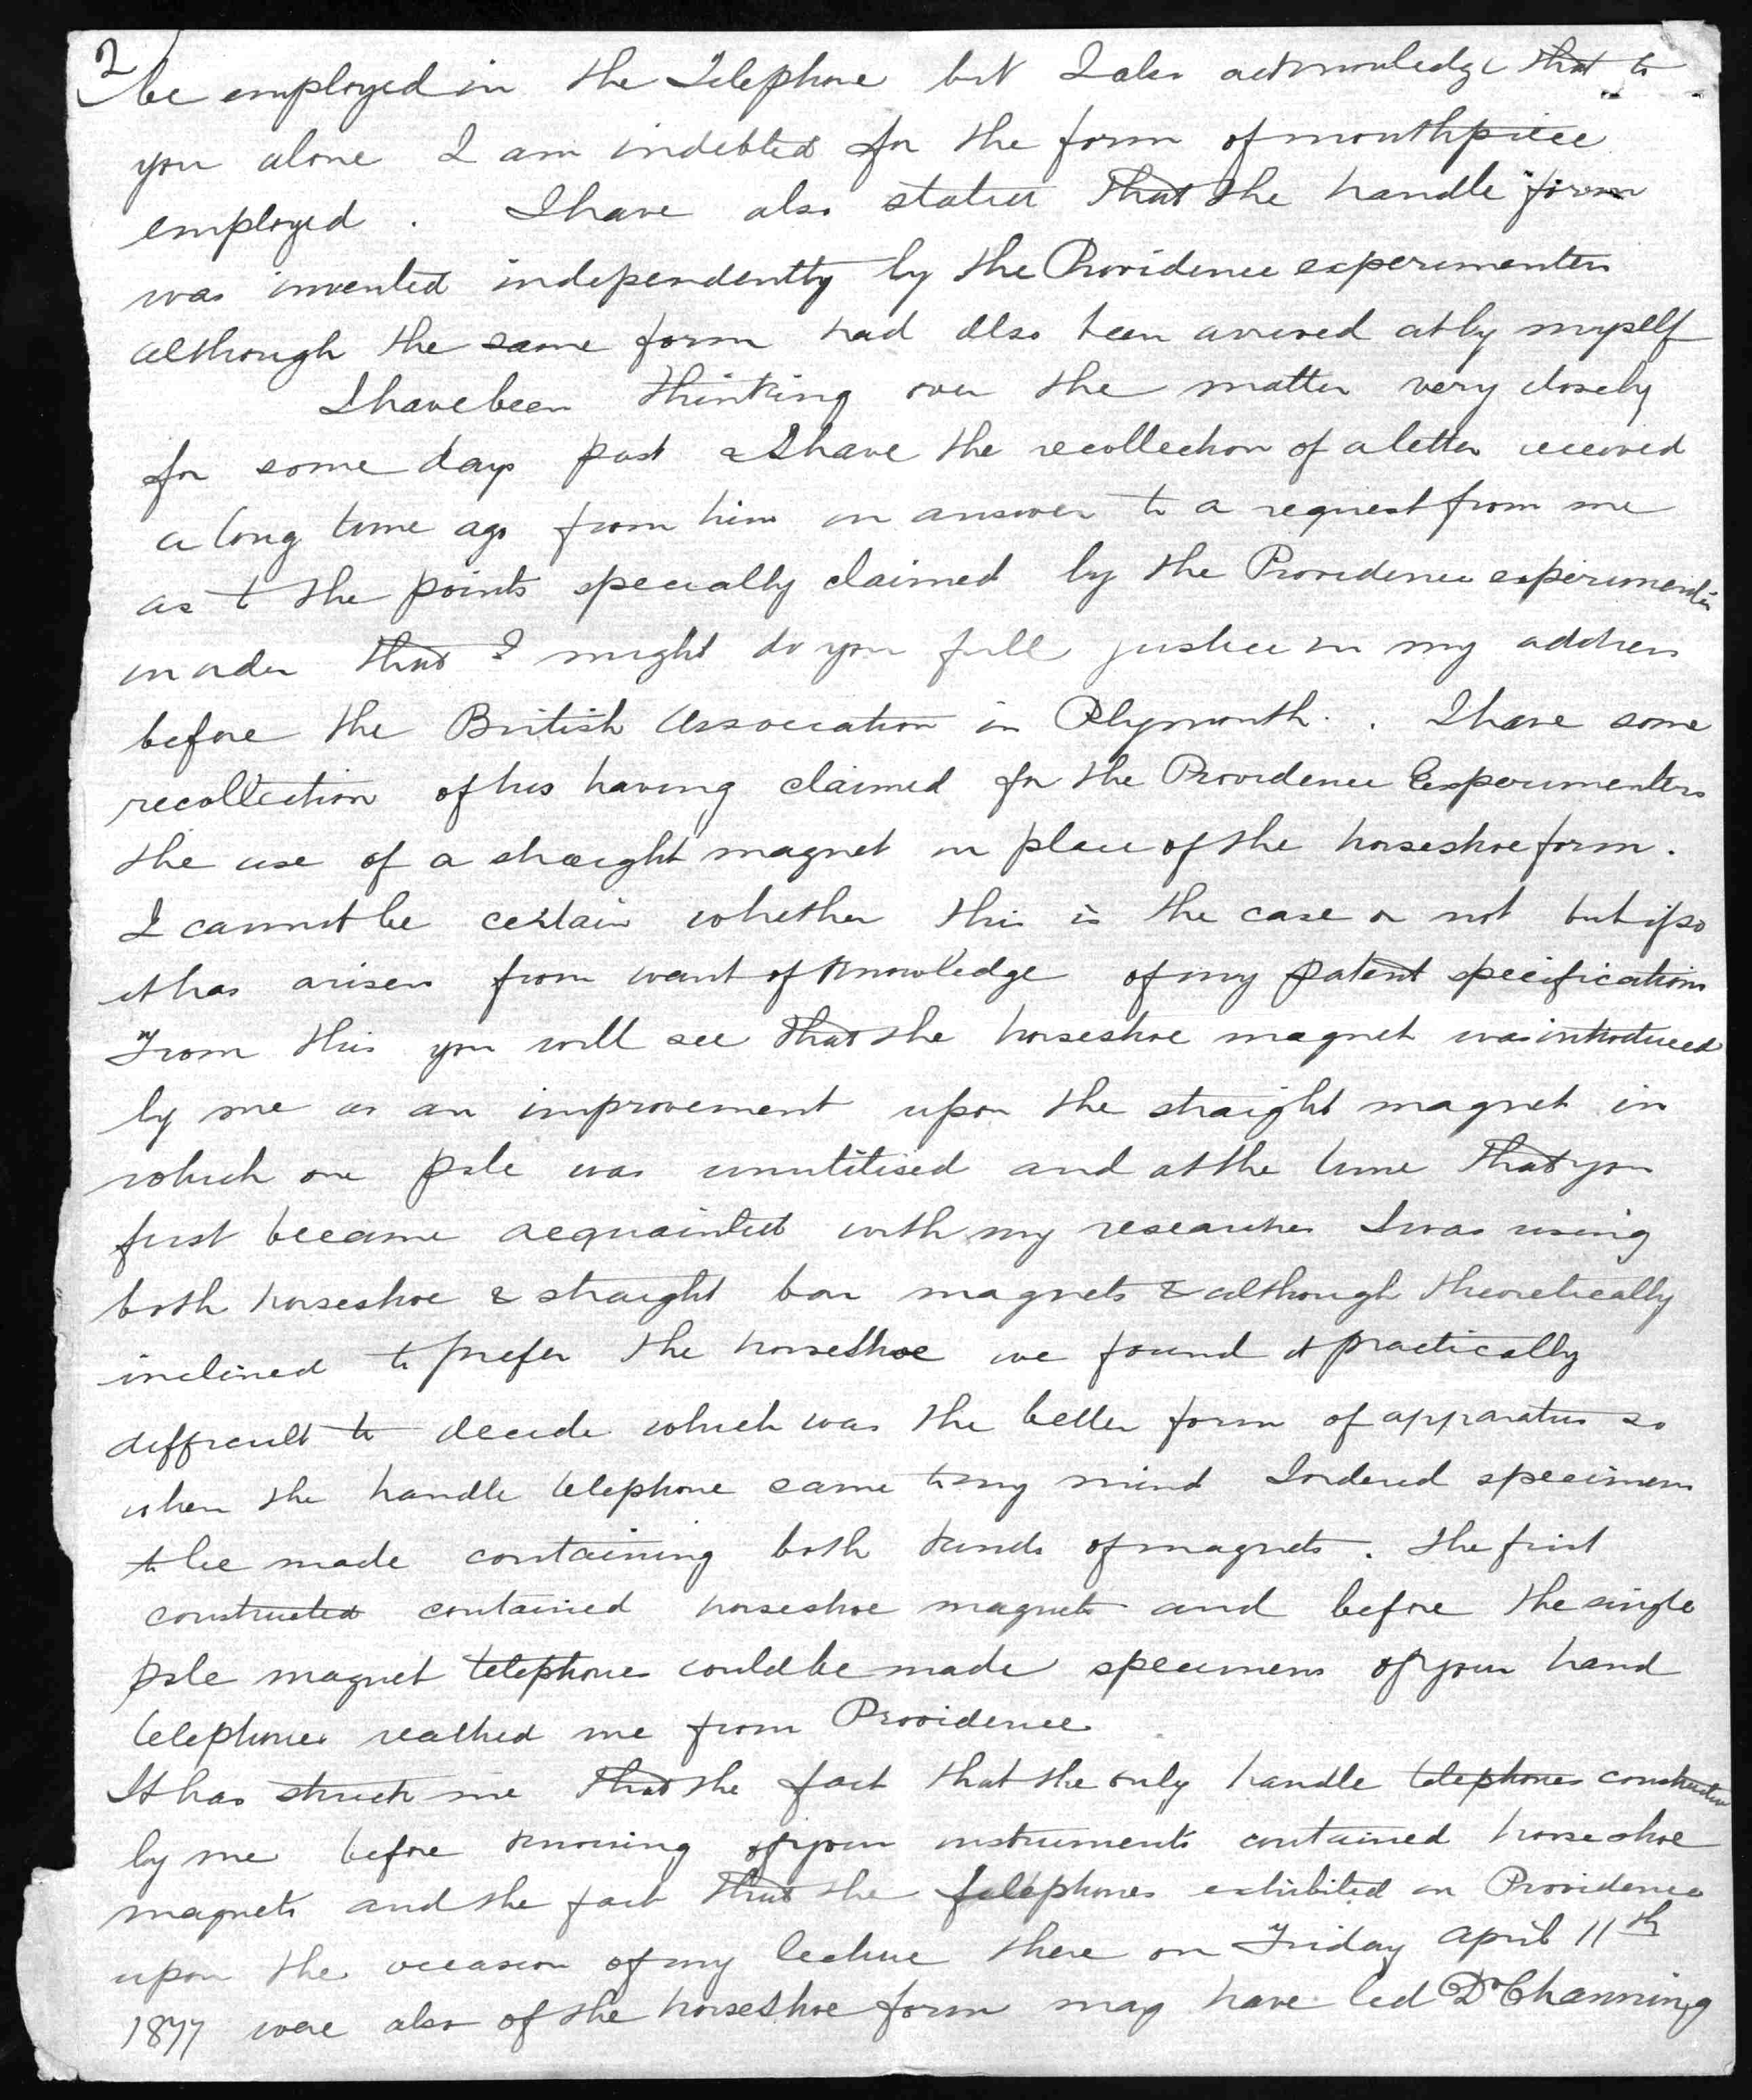 2
be employed in the Telephone but I also acknowledge that to
you alone I am indebted for the form of mouthpiece
employed. I have also stated that the handle form
was invented independently by the Providence experimenters
although the same form had also been arrived at by myself
I have been thinking over the matter very closely
for some days past & I have the recollection of a letter received
a long time ago from him in answer to a request from me
as to the points specially claimed by the Providence experimenters
in order that I might do you full justice in my address
before the British Association in Plymouth. . I have some
recollection of his having claimed for the Providence Experimenters
the use of a straight magnet in place of the horseshoe form.
I cannot be certain whether this is the case or not but if so
it has arisen from want of knowledge of my patent specifications
From this you will see that the horseshoe magnet was introduced
by me as an improvement upon the straight magnet in
which one pole was unutilised and at the time that you
first became acquainted with my researches I was using
both horseshoe & straight bar magnets & although theoretically
inclined to prefer the horseshoe we found it practically
difficult to decide which was the better form of apparatus so
when the handle telephone came to my mind I ordered specimens
to be made containing both kinds of magnets. The first
constructed contained horseshoe magnets and before the single
pole magnet telephones could be made specimens of your hand
telephones reached me from Providence
It has struck me that the fact that the only handle telephones constructed
by me before knowing of your instruments contained horseshoe
magnets and the fact that the telephones exhibited in Providence
upon the occasion of my lecture there on Friday April 11th
1877 were also of the horseshoe form may have led Dr Channing